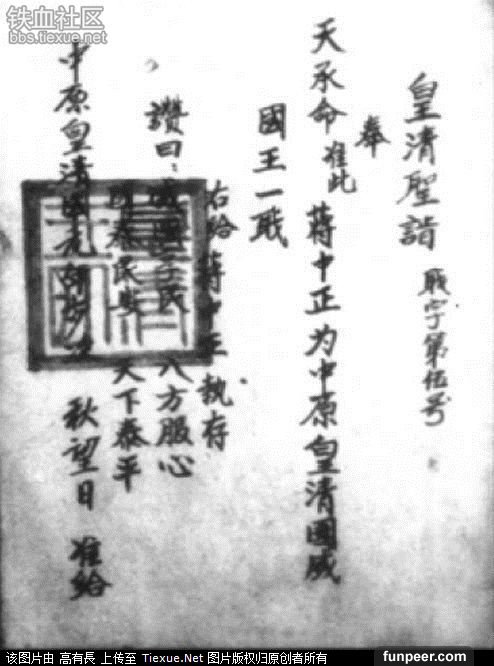 铁血社区
bbs.tiexue.net
皇清聖詣
職字第伍号
奉
天承命准此 蒋中正为中原皇清國威
國王一職
右给蒋中正執存
讚曰：國民 八方服心
國泰民安 天下泰平
中原皇清國元 秋望日 准给
该图片由 高有長 上传至 Tiexue.Net 图片版权归原创者所有
funpeer.com